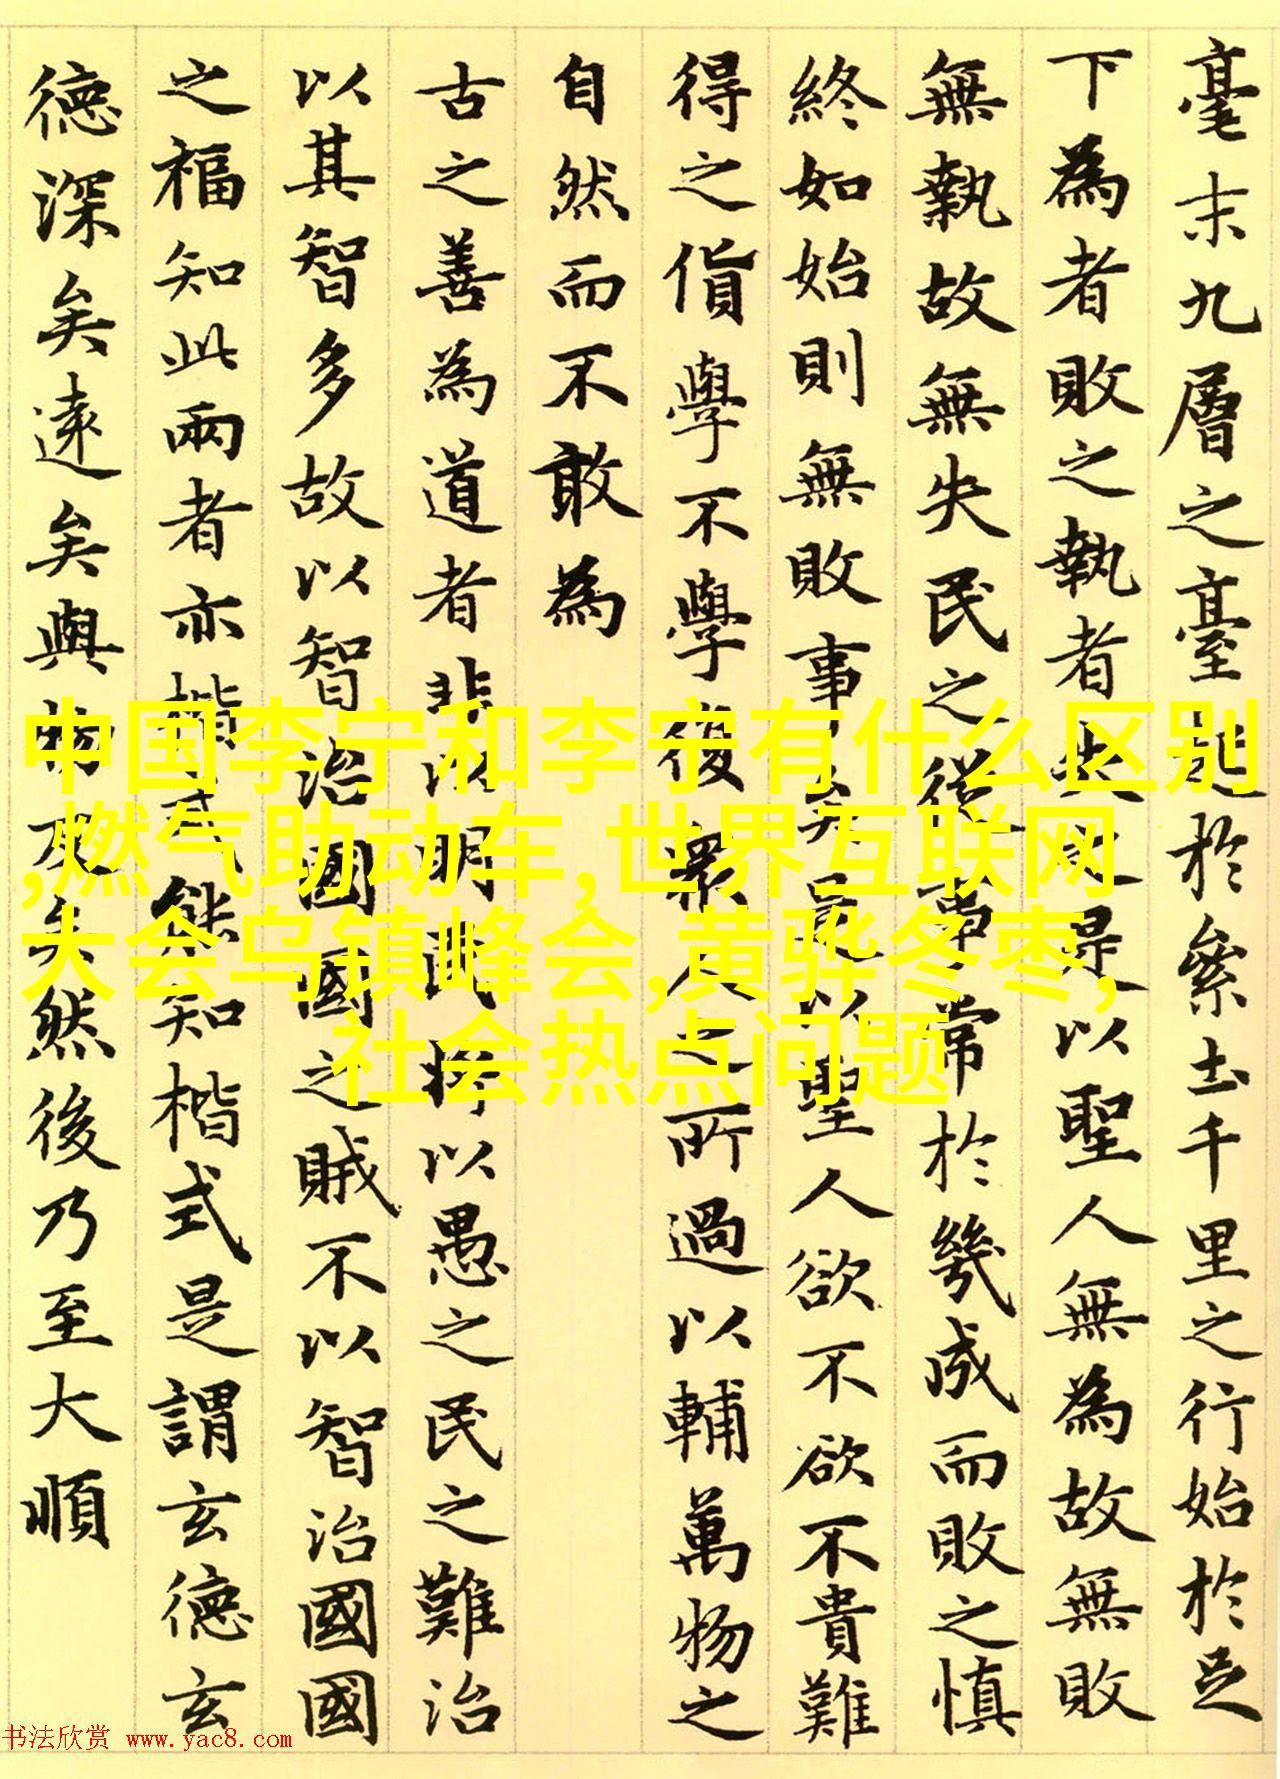 毫末九層之臺起於絫土千里之行始於足
下為者敗之執者失之是以聖人無為故無敗
無執故無失民之從事常於幾成而敗之慎
終如始則無敗事矣是以聖人欲不欲不貴難
得之貨學不學復眾人之所過以輔萬物之
自然而不敢為
古之善為道者非以明民將以愚之民之難治
以其智多故以智治國國之賊不以智治國國
之福知此兩者亦楷式能知楷式是謂玄德玄
德深矣遠矣與物反矣然後乃至大順
中国李宁和李宁有什么区别
,燃气助动车,世界互联网
大会乌镇峰会,黄骅冬枣,
社会热点问题
书法欣赏 www.yac8.com